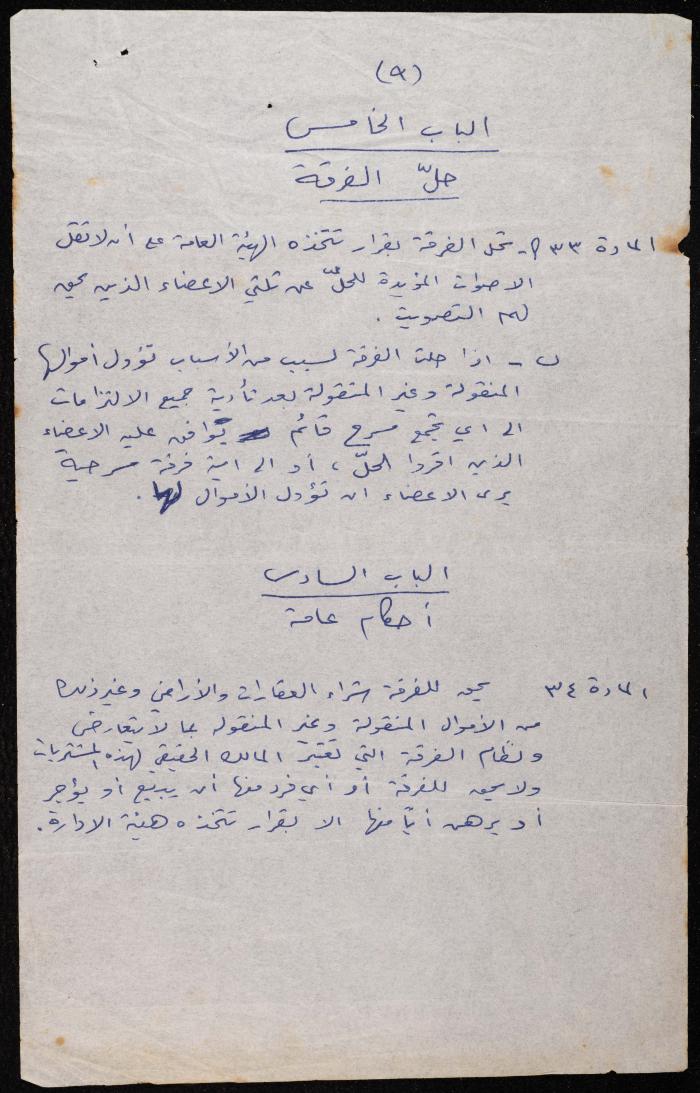 (٩)
الباب الخامس
حلّ الفرقة
المادة ٣٣ أ- تحل الفرقة بقرار تتخذه الهيئة العامة على أن لا تقل
الاصوات المؤيدة للحلّ عن ثلثي الاعضاء الذين يحق
لهم التصويت .
ب - اذا حلت الفرقة لسبب من الأسباب تؤول أموالها
المنقولة وغير المنقولة بعد تأدية جميع الالتزامات
الى اي تجمع مسرحي قائم يوافق عليه الاعضاء
الذين اقروا الحلّ ، أو الى اية فرقة مسرحية
يرى الاعضاء ان تؤول الأموال لها .
الباب السادس
أحكام عامة
المادة ٣٤ يحق للفرقة شراء العقارات والأراضي وغير ذلك
من الأموال المنقولة وغير المنقولة بما لا يتعارض
ونظام الفرقة التي تعتبر المالك الحقيقي لهذه المشتريات
ولا يحق للفرقة أو أي فرد منها أن يبيع أو يؤجر
أو يرهن أيّاً منها الا بقرار تتخذه هيئة الادارة .